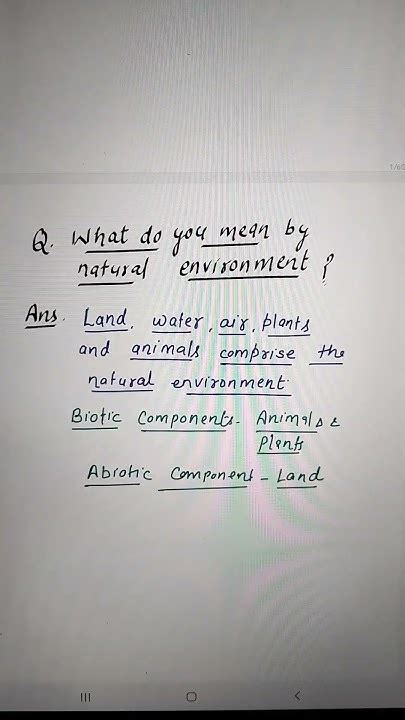 1/60
Q. What do you mean by
natural environment ?
Ans. Land, water, air, plants
and animals comprise the
natural environment.
Biotic Components - Animals &
Plants
Abiotic Component - Land